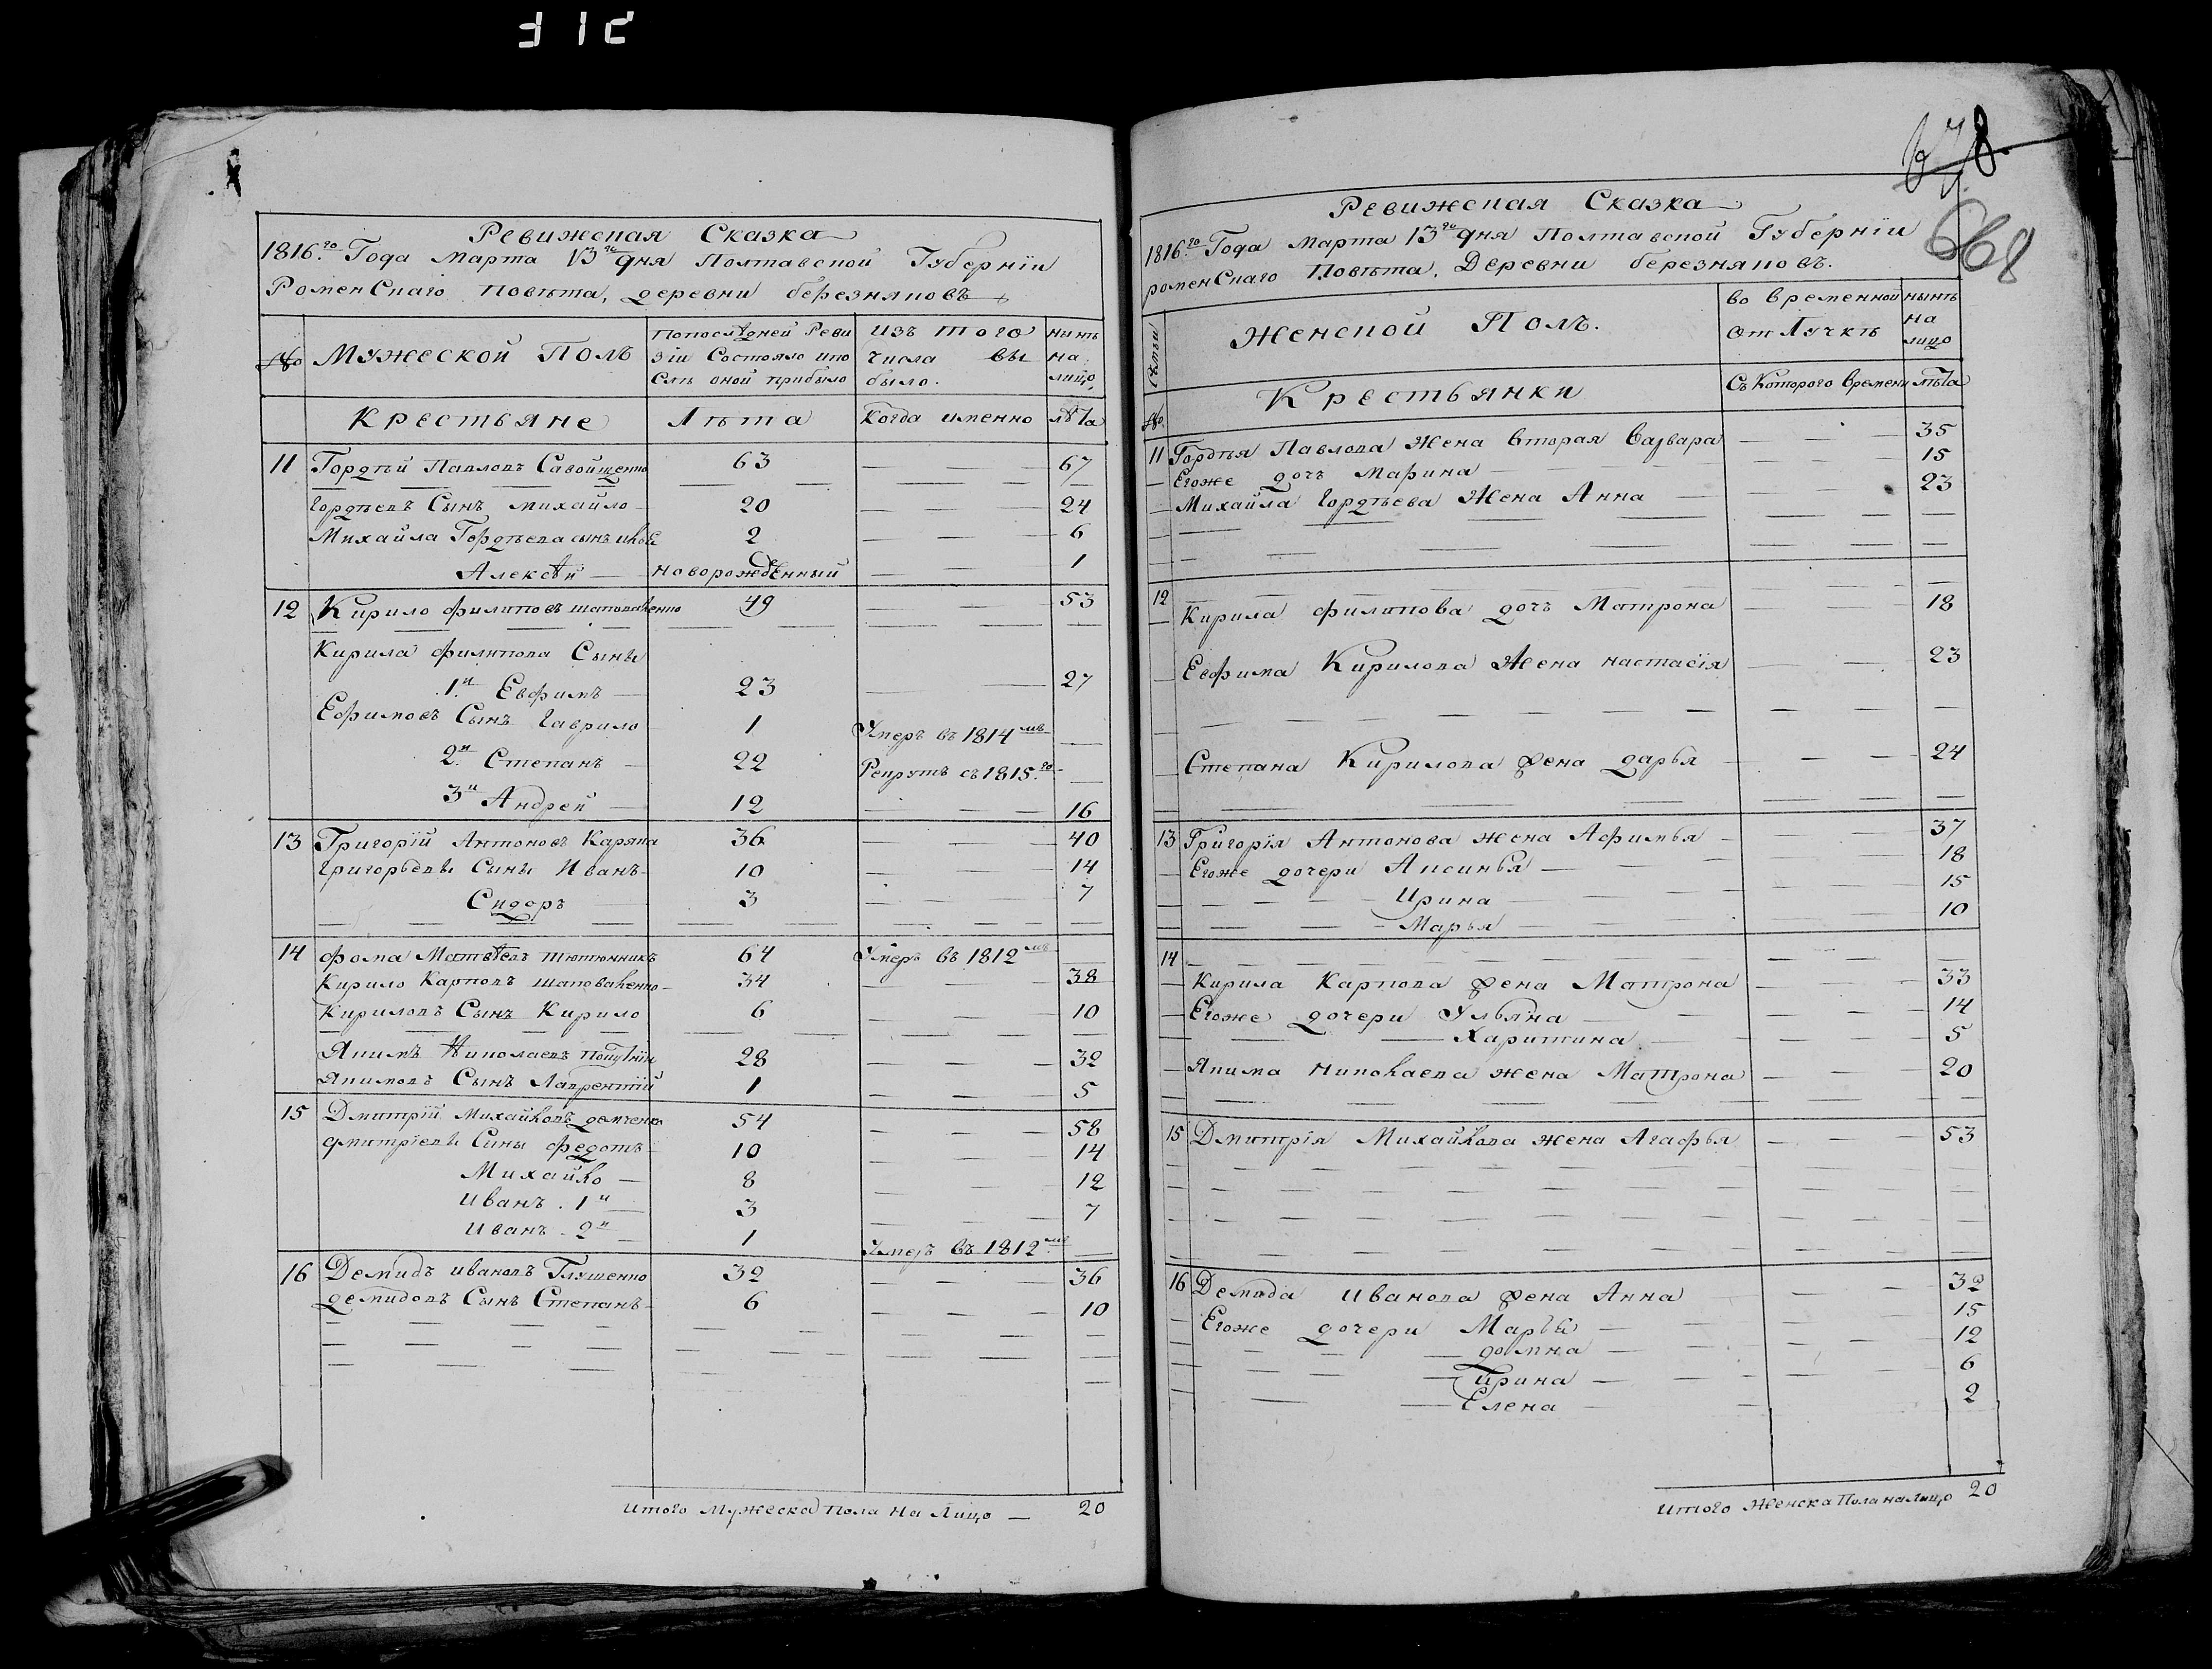 312
Ревижская Сказка
1816.го Года Марта 13го дня Полтавской Губерніи
Роменскаго Повѣта, деревни березняковъ
№ Мужеской Полъ
Попослѣдней Реви
зіи Состояло ипо
Слѣ оной прибыло
изъ того
числа вы
было.
нынѣ
на
лицо
Крестьяне Лѣта Когда именно лѣта
11 Гордѣй Павловъ Савойщенко 63 — 67
Гордѣевъ Сынъ михайло 20 — 24
Михайла Гордѣева сынъ 2 — 6
Алексѣй — новорожденный — 1
12 Кирило филиповъ шаповаленко 49 — 53
Кирила филипова Сыны
1.й Евфимъ — 23 — 27
Ефимовъ Сынъ гаврило 1 Умеръ въ 1814мъ —
2.й Степанъ — 22 Рекрутъ съ 1815.го —
3й Андрей — 12 — 16
13 Григорій Антоновъ Каряка 36 — 40
григорьевы Сыны Иванъ 10 — 14
Сидоръ 3 — 7
14 фома Матвѣевъ тютюнникъ 64 Умеръ въ 1812мъ —
Кирило Карповъ шаповаленко 34 — 38
Кириловъ Сынъ Кирило 6 — 10
Якимъ Николаевъ 28 — 32
Якимовъ Сынъ Лаврентій 1 — 5
15 Дмитрій Михайловъ демченко 54 — 58
дмитріевы Сыны федотъ 10 — 14
Михайло — 8 — 12
иванъ. 1й 3 — 7
иванъ. 2й 1 Умеръ въ 1812мъ —
16 Демидъ ивановъ Глушенко 32 — 36
демидовъ Сынъ Степанъ 6 — 10
итого Мужеска пола на Лицо — 20
668
Ревижская Сказка
1816го Года Марта 13го дня Полтавской Губерніи
роменскаго Повѣта, Деревни березняковъ.
Семьи
Женской Полъ.
во временной
отлучкѣ
нынѣ
на
лицо
№ Крестьянки Съ Которого времени лѣта
11 Гордѣя Павлова Жена вторая Варвара — 35
Егоже дочъ Марина — 15
Михайла Гордѣева Жена Анна — 23
12 Кирила филипова дочъ Матрона — 18
Евфима Кирилова Жена настасія — 23
Степана Кирилова жена дарья — 24
13 Григорія Антонова жена Афимья — 37
Егоже дочери Аксинья — 18
Ирина — 15
Марья — 10
14
Кирила Карпова жена Матрона — 33
Егоже дочери Ульяна — 14
Харитина — 5
Якима николаева жена Матрона — 20
15 Дмитрія Михайлова жена Агафья — 53
16 Демида иванова жена Анна — 32
Егоже дочери Марья — 15
домна — 12
ирина — 6
Елена — 2
итого Женска Пола налицо 20